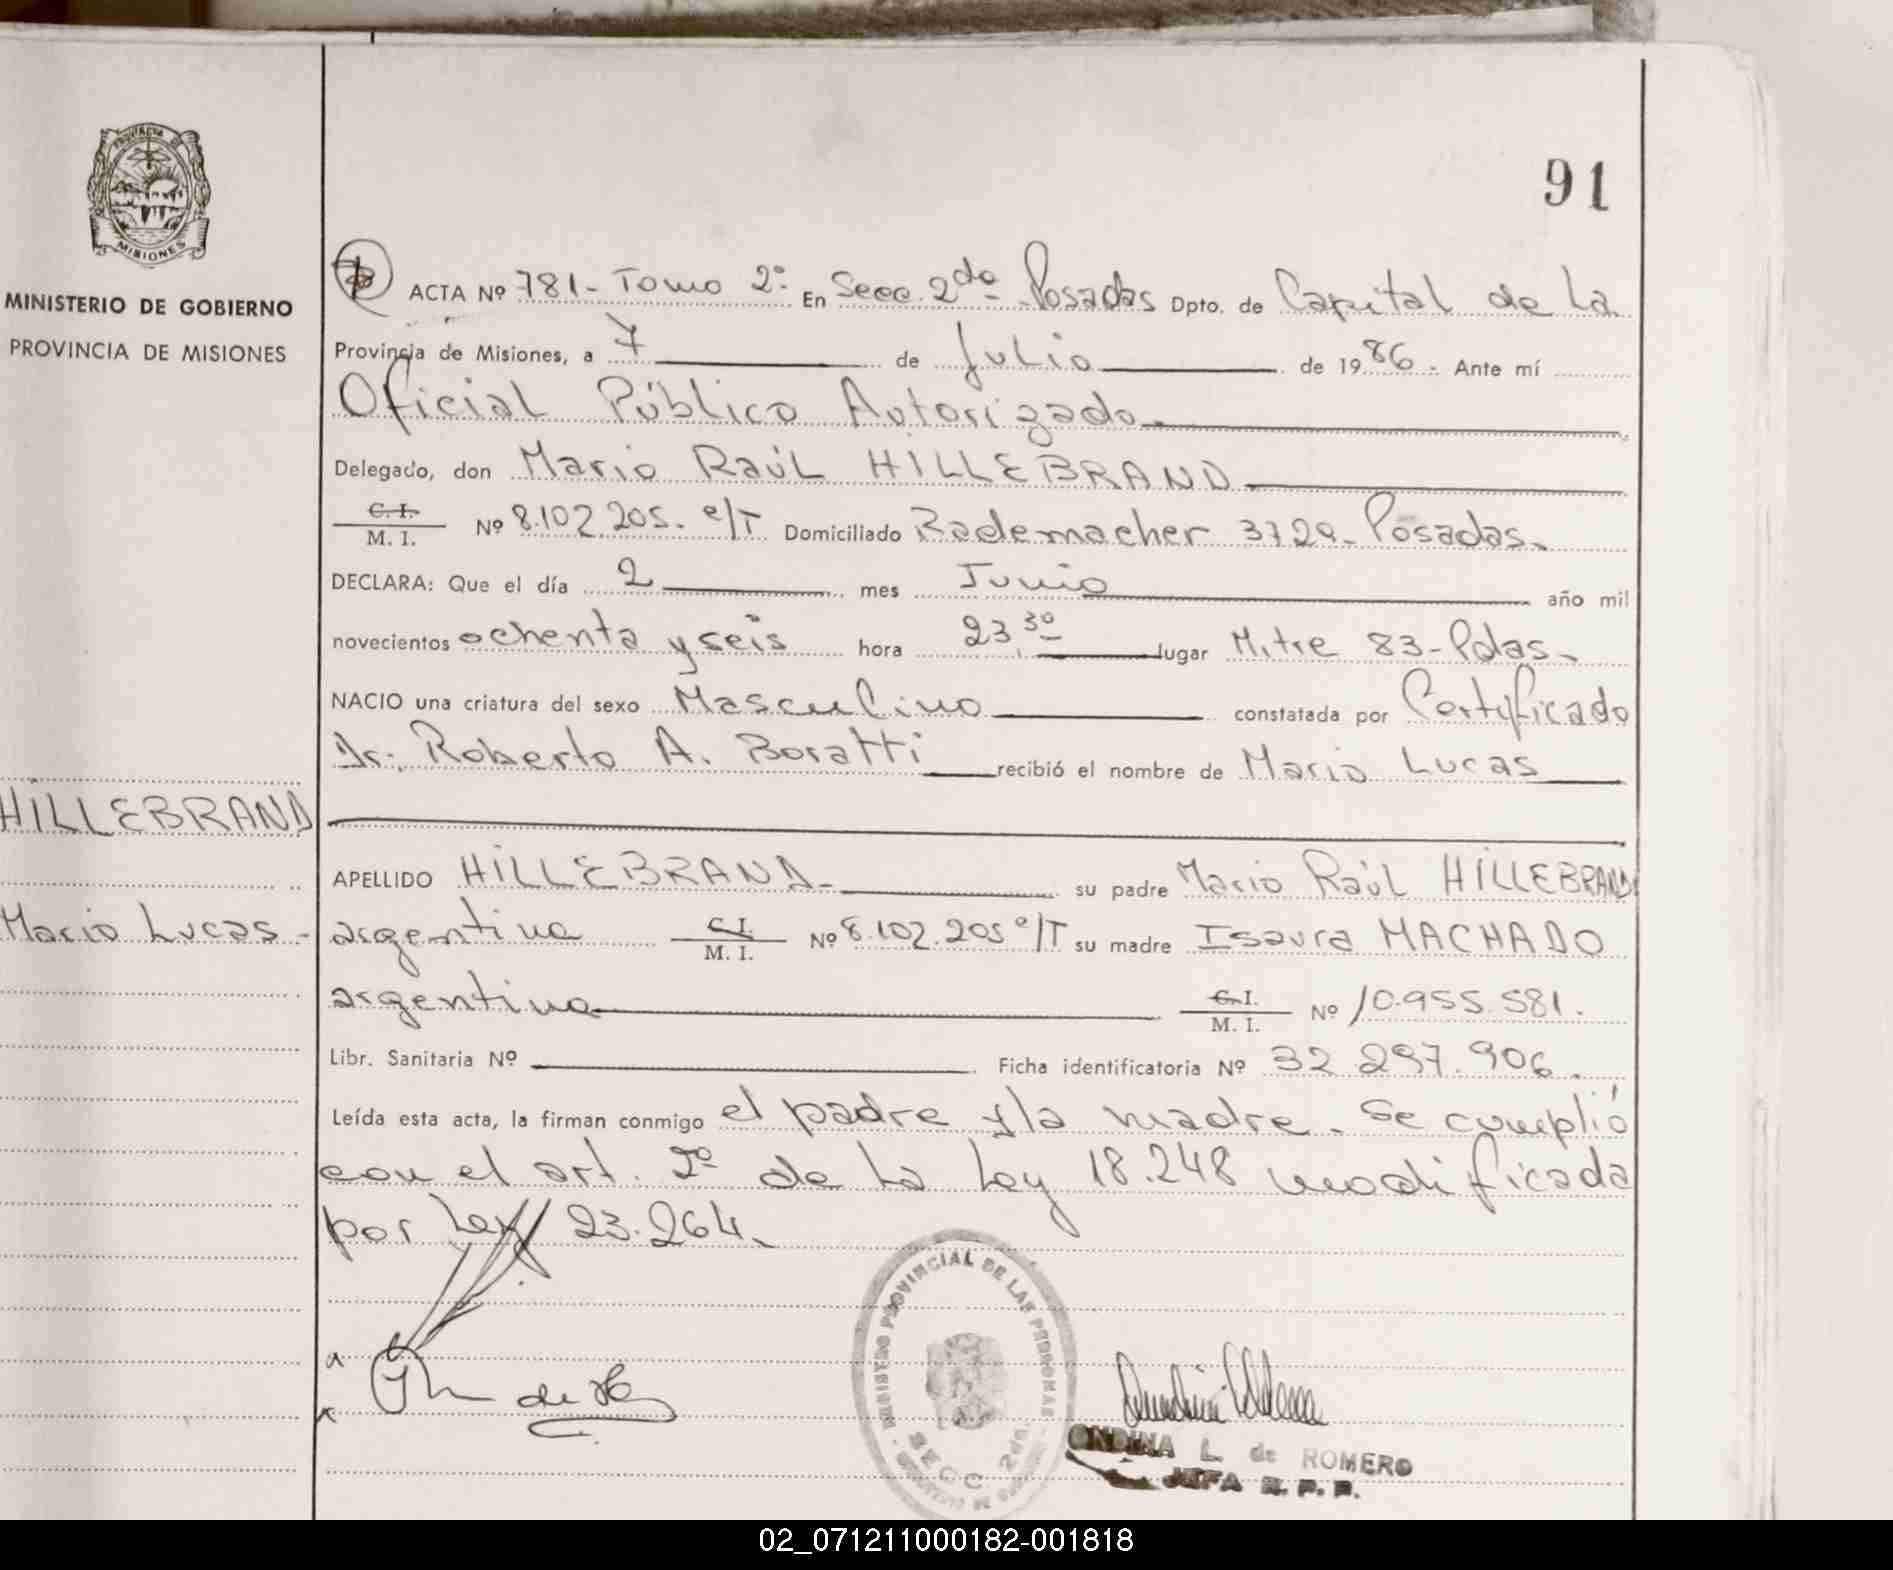 91
ACTA Nº 781- Tomo 2º En Secc. 2da Posadas Dpto. de Capital de La
MINISTERIO DE GOBIERNO
PROVINCIA DE MISIONES
Provincia de Misiones, a 7 de Julio de 1986.- Ante mí
Oficial Público Autorizado
Delegado, don Mario Raúl HILLEBRAND
C. I.
M. I. Nº 8.102.205. e/T Domiciliado Rademacher 3729- Posadas.
DECLARA: Que el día 2 mes Junio año mil
novecientos ochenta y seis hora 23,30 lugar Mitre 83- Pdas.
NACIO una criatura del sexo Masculino constatada por Certificado
Dr. Roberto A. Boratti recibió el nombre de Mario Lucas
HILLEBRAND
APELLIDO HILLEBRAND su padre Mario Raúl HILLEBRAND
Mario Lucas -
argentina C.I.
M. I. Nº 8.102.205 e/T su madre Isaura MACHADO
argentina C.I.
M. I. Nº 10.955.581.
Libr. Sanitaria Nº Ficha identificatoria Nº 32.297.906.
Leída esta acta, la firman conmigo el padre y la madre. Se cumplió
con el art. 2º de la Ley 18.248 modificada
por Ley 23.264.
REGISTRO PROVINCIAL DE LAS PERSONAS
SECC. 2da.
ONDINA L. de ROMERO
JEFA R. P. P.
02_071211000182-001818